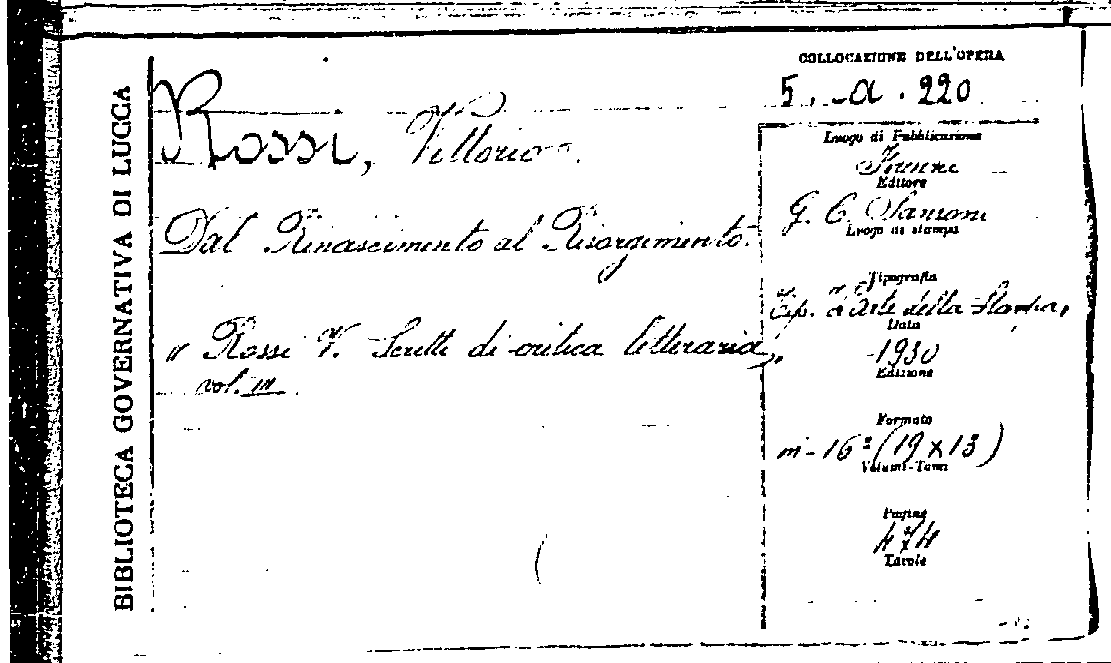 BIBLIOTECA GOVERNATIVA DI LUCCA
Rossi, Vittorio.
Dal Rinascimento al Risorgimento.
" Rossi V. Scritti di critica letteraria,
vol. III
COLLOCAZIONE DELL'OPERA
5. - a. 220
Luogo di Pubblicazione
Firenze
Editore
G. C. Sansoni
Luogo di stampa
Tipografia
Tip. L'Arte della Stampa,
Data
1930
Edizione
Formato
in-16º (19 x 13)
Volumi-Tomi
Pagine
474
Tavole